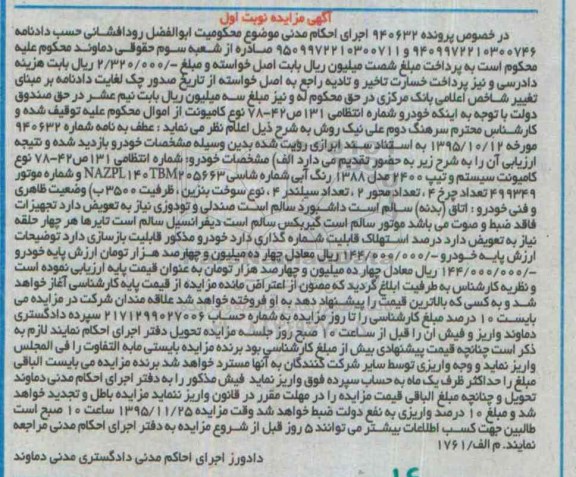 آگهی مزایده نوبت اول
در خصوص پرونده ۹۴۰۶۳۲ اجرای احکام مدنی موضوع محکومیت ابوالفضل رودافشانی حسب دادنامه
۹۴۰۹۹۷۲۲۱۰۳۰۰۷۴۶ و ۹۵۰۹۹۷۲۲۱۰۳۰۰۷۱۱ صادره از شعبه سوم حقوقی دماوند محکوم علیه
محکوم است به پرداخت مبلغ شصت میلیون ریال بابت اصل خواسته و مبلغ -/۲/۳۲۰/۰۰۰ ریال بابت هزینه
دادرسی و نیز پرداخت خسارت تاخیر و تادیه راجع به اصل خواسته از تاریخ صدور چک لغایت دادنامه بر مبنای
تغییر شاخص اعلامی بانک مرکزی در حق محکوم له و نیز مبلغ سه میلیون ریال بابت نیم عشر در حق صندوق
دولت با توجه به اینکه خودرو شماره انتظامی ۱۳۱ص۴۲-۷۸ نوع کامیونت از اموال محکوم علیه توقیف شده و
کارشناس محترم سرهنگ دوم علی نیک روش به شرح ذیل اعلام نظر می نماید : عطف به نامه شماره ۹۴۰۶۳۲
مورخه ۱۳۹۵/۱۰/۱۲ به استناد سند ابرازی رویت شده بدین وسیله مشخصات خودرو بازدید شده و نتیجه
ارزیابی آن را به شرح زیر به حضور تقدیم می دارد الف) مشخصات خودرو: شماره انتظامی ۱۳۱ص۴۲-۷۸ نوع
کامیونت سیستم و تیپ ۲۴۰۰ مدل ۱۳۸۸ رنگ آبی شماره شاسی NAZPL۱۴۰TBM۲۰۵۶۶۳ و شماره موتور
۴۹۹۳۴۹ تعداد چرخ ۴ ، تعداد محور ۲ ، تعداد سیلندر ۴ ، نوع سوخت بنزین ، ظرفیت ۳۵۰۰ ب) وضعیت ظاهری
و فنی خودرو : اتاق (بدنه) سالم است داشبورد سالم است صندلی و تودوزی نیاز به تعویض دارد تجهیزات
فاقد ضبط و صوت می باشد موتور سالم است گیربکس سالم است دیفرانسیل سالم است تایرها هر چهار حلقه
نیاز به تعویض دارد درصد استهلاک قابلیت شماره گذاری دارد خودرو مذکور قابلیت بازسازی دارد توضیحات
ارزش پایه خودرو -/۱۴۴/۰۰۰/۰۰۰ ریال معادل چهارده میلیون و چهارصد هزار تومان ارزش پایه خودرو
-/۱۴۴/۰۰۰/۰۰۰ ریال معادل چهارده میلیون و چهارصد هزار تومان به عنوان قیمت پایه ارزیابی نموده است
و نظریه کارشناس به طرفیت ابلاغ گردید که مصون از اعتراض مانده مزایده از قیمت پایه کارشناسی آغاز خواهد
شد و به کسی که بالاترین قیمت را پیشنهاد دهد به او فروخته خواهد شد علاقه مندان شرکت در مزایده می
بایست ۱۰ درصد مبلغ کارشناسی را تا روز مزایده به شماره حساب ۲۱۷۱۲۹۹۰۲۷۰۰۶ سپرده دادگستری
دماوند واریز و فیش آن را قبل از ساعت ۱۰ صبح روز جلسه مزایده تحویل دفتر اجرای احکام نمایند لازم به
ذکر است چنانچه قیمت پیشنهادی بیش از مبلغ کارشناسی بود برنده مزایده بایستی مابه التفاوت را فی المجلس
واریز نماید و وجه واریزی توسط سایر شرکت کنندگان به آنها مسترد خواهد شد برنده مزایده می بایست الباقی
مبلغ را حداکثر ظرف یک ماه به حساب سپرده فوق واریز نماید فیش مذکور را به دفتر اجرای احکام مدنی دماوند
تحویل و چنانچه مبلغ الباقی قیمت مزایده را در مهلت مقرر در قانون واریز ننماید مزایده باطل و تجدید خواهد
شد و مبلغ ۱۰ درصد واریزی به نفع دولت ضبط خواهد شد وقت مزایده ۱۳۹۵/۱۱/۲۵ ساعت ۱۰ صبح است
طالبین جهت کسب اطلاعات بیشتر می توانند ۵ روز قبل از شروع مزایده به دفتر اجرای احکام مدنی مراجعه
نمایند. م الف/۱۷۶۱
دادورز اجرای احکام مدنی دادگستری مدنی دماوند